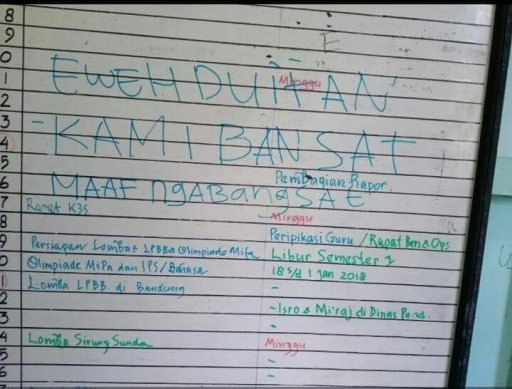 8
9
0
1 EWEH DUITAN Minggu
2
3 - KAMI BANSAT
4
5 Pembagian Rapor
6 MAAF ngABangSAt
7 Rapat K3S
8 Minggu
9 Persiapan Lomba LPBB & Olimpiade Mipa Peripikasi Guru / Rapat Ben & Ops
0 Olimpiade MiPa dan IPS/Bahasa Libur Semester 1
1 Lomba LPBB di Bandung 18 s/d 1 Jan 2018
2 -
3 - Isro & Mi'raj di Dinas Pend.
4 Lomba Sirung Sunda Minggu
5 -
6 -